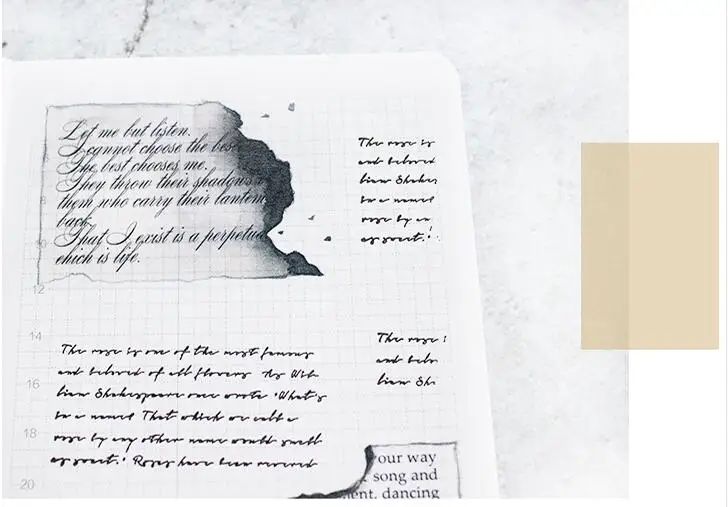 Let me but listen.
I cannot choose the best
The best chooses me.
They throw their shadows
them who carry their lantern
back.
That I exist is a perpetua
which is life.
The rose is
and beloved
liam Shakes
in a name?
rose by an
as sweet.'
8
10
12
14
16
18
20
The rose is one of the most famous
and beloved of all flowers. As Wil-
liam Shakespeare once wrote 'What's
in a name? That which we call a
rose by any other name would smell
as sweet.' Roses have been revered
The rose i
and belo
liam Sha
our way
song and
ent, dancing